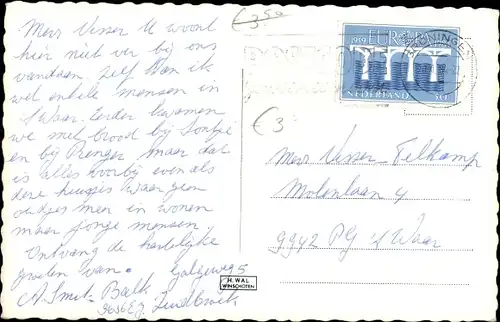 Mevr Visser U woont
hier niet ver bij ons
vandaan. Zelf kan ik
wel enkele mensen in
't Waar. Eerder kwamen
we met brood bij Sontje
en bij Renger. Maar dat
is alles voorbij evenals
deze huisjes waar geen
oudjes meer in wonen
maar jonge mensen.
Ontvang de hartelijke
groeten van. Galgeweg 5
A Smit-Balk Zuidbroek
€ 3.50
€ 3
1959 EUROPA
NEDERLAND
GRONINGEN
Mevr Visser-Felkamp
Molenlaan 4
9942 PG 't Waar
H. WAL
WINSCHOTEN